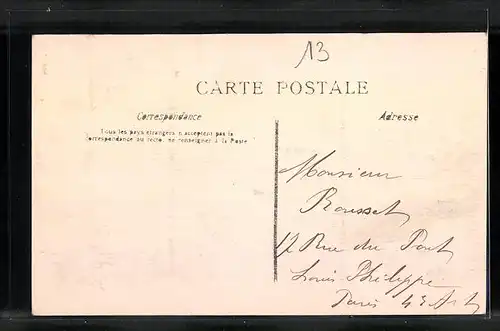 13
CARTE POSTALE
Correspondance
Tous les pays étrangers n'acceptent pas la
correspondance au recto, se renseigner à la Poste
Adresse
Monsieur
Rousset
12 Rue du Pont
Louis Philippe
Paris 4e Art